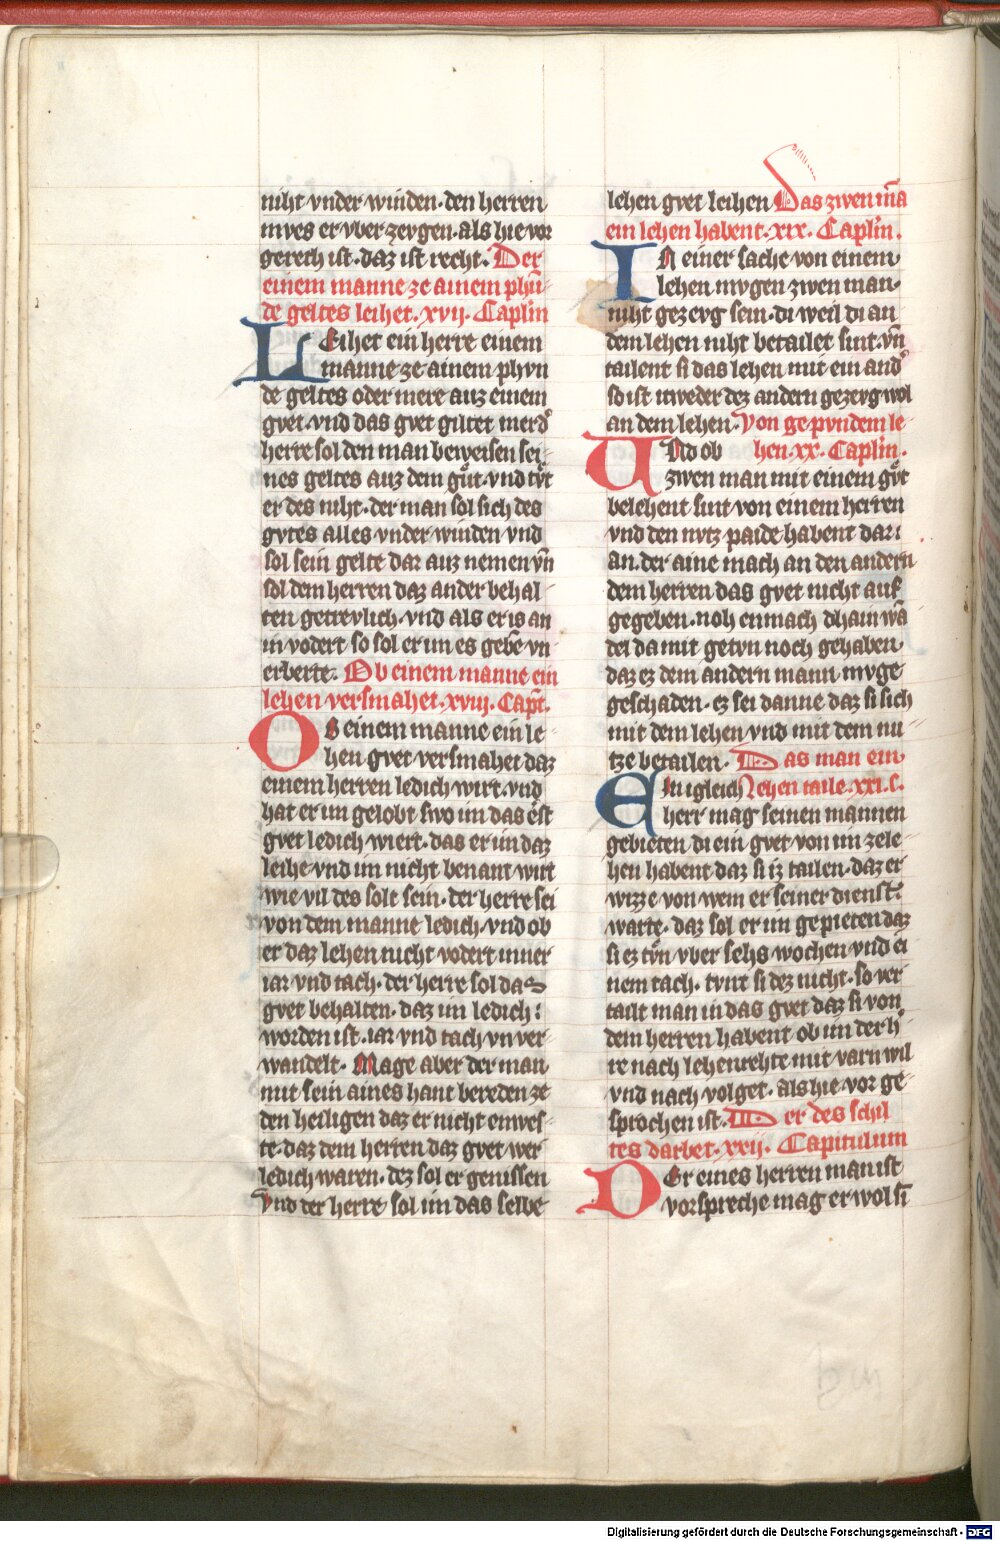 niht vnder winden · den herren
mves er vber zevgen · als hie vor
gerech ist · daz ist recht · Der
einem manne ze ainem phu̅
de geltes leihet · xvij · Caplm̅
LEihet ein herre einem
manne ze ainem phvn
de geltes oder mere auz einem
gvet · vnd das gvet giltet merd᷒
herre sol den man beweisen sei
nes geltes auz dem gu̍t · vnd tv̍t
er des niht · der man sol sich des
gvtes alles vnder winden vnd
sol sein gelte dar auz nemen vn̅
sol dem herren daz ander behal
ten getrevlich · vnd als er is an
in vodert so sol er im es gebe̅ vn
erberte · Ob einem manne ein
lehen versmahet · xviij · Capt̅.
OB einem manne ein le
hen gvet versmahet daz
einem herren ledich wirt · vnd
hat er im gelobt swo im das est
gvet ledich wiert · das er im daz
leihe vnd im nicht benant wirt
wie vil des solt sein · der herre sei
von dem manne ledich · vnd ob
er daz lehen nicht vodert inner
iar vnd tach · der herre sol das
gvet behalten · daz im ledich
worden ist · iar vnd tach vnver
wandelt · Mage aber der man
mit sein aines hant bereden ze
den heiligen daz er nicht enwes
te · daz dem herren daz gvet wer
ledich waren · dez sol er genissen
Vnd der herre sol im das selbe
lehen gvet leihen Das zwen ma̅
ein lehen habent · xix · Caplm̅ .
IN einer sache von einem
lehen mvgen zwen man
niht gezevg sein · di weil di an
dem lehen niht betailet sint · vn̅
tailent si das lehen mit ein and᷒
so ist itweder dez andern gezevg wol
an dem lehen · Von gepvndem le
VNd ob hen · xx · Caplm̅ .
zwen man mit einem gv̍t
belehent sint von einem herren
vnd den nvtz paide habent dar
an · der aine mach an den andern
dem herren das gvet nicht auf
gegeben · noh enmach dhain wa̅
del da mit getvn noch gehaben
daz ez dem andern mann mvge
geschaden · ez sei danne daz si sich
mit dem lehen vnd mit dem nu
tze betailen · Das man ein
EIn igleich lehen taile · xxi · C.
herr mag seinen mannen
gebieten di ein gvet von im ze le
hen habent daz si iz tailen · daz er
wizze von wem er seiner dienst
warte · daz sol er im gepieten daz
si ez tv̍n vber sehs wochen vnd ei
nem tach · tvnt si dez nicht · so ver
tailt man in das gvet daz si von
dem herren habent ob im der h᷒
re nach lehenrehte mit varn wil
vnd nach volget · als hie vor ge
sprochen ist · Der des schil
tes darbet · xxij · Capitulum
DEr eines herren man ist
vorspreche mag er wol si̅
Digitalisierung gefördert durch die Deutsche Forschungsgemeinschaft - DFG